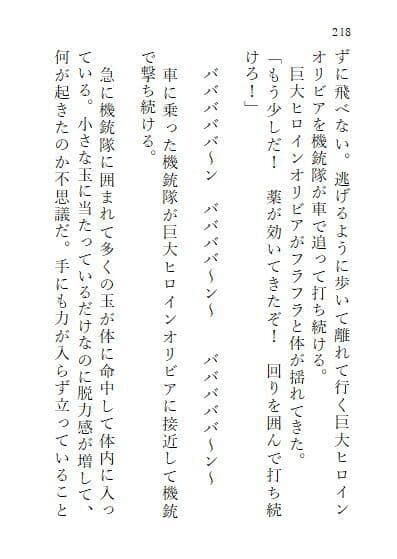 218
ずに飛べない。逃げるように歩いて離れて行く巨大ヒロイン
オリビアを機銃隊が車で追って打ち続ける。
巨大ヒロインオリビアがフラフラと体が揺れてきた。
「もう少しだ！　薬が効いてきたぞ！　回りを囲んで打ち続
けろ！」
ババババババ～ン　ババババ～ン～　ババババババ～ン～
車に乗った機銃隊が巨大ヒロインオリビアに接近して機銃
で撃ち続ける。
急に機銃隊に囲まれて多くの玉が体に命中して体内に入っ
ている。小さな玉に当たっているだけなのに脱力感が増して、
何が起きたのか不思議だ。手にも力が入らず立っていること